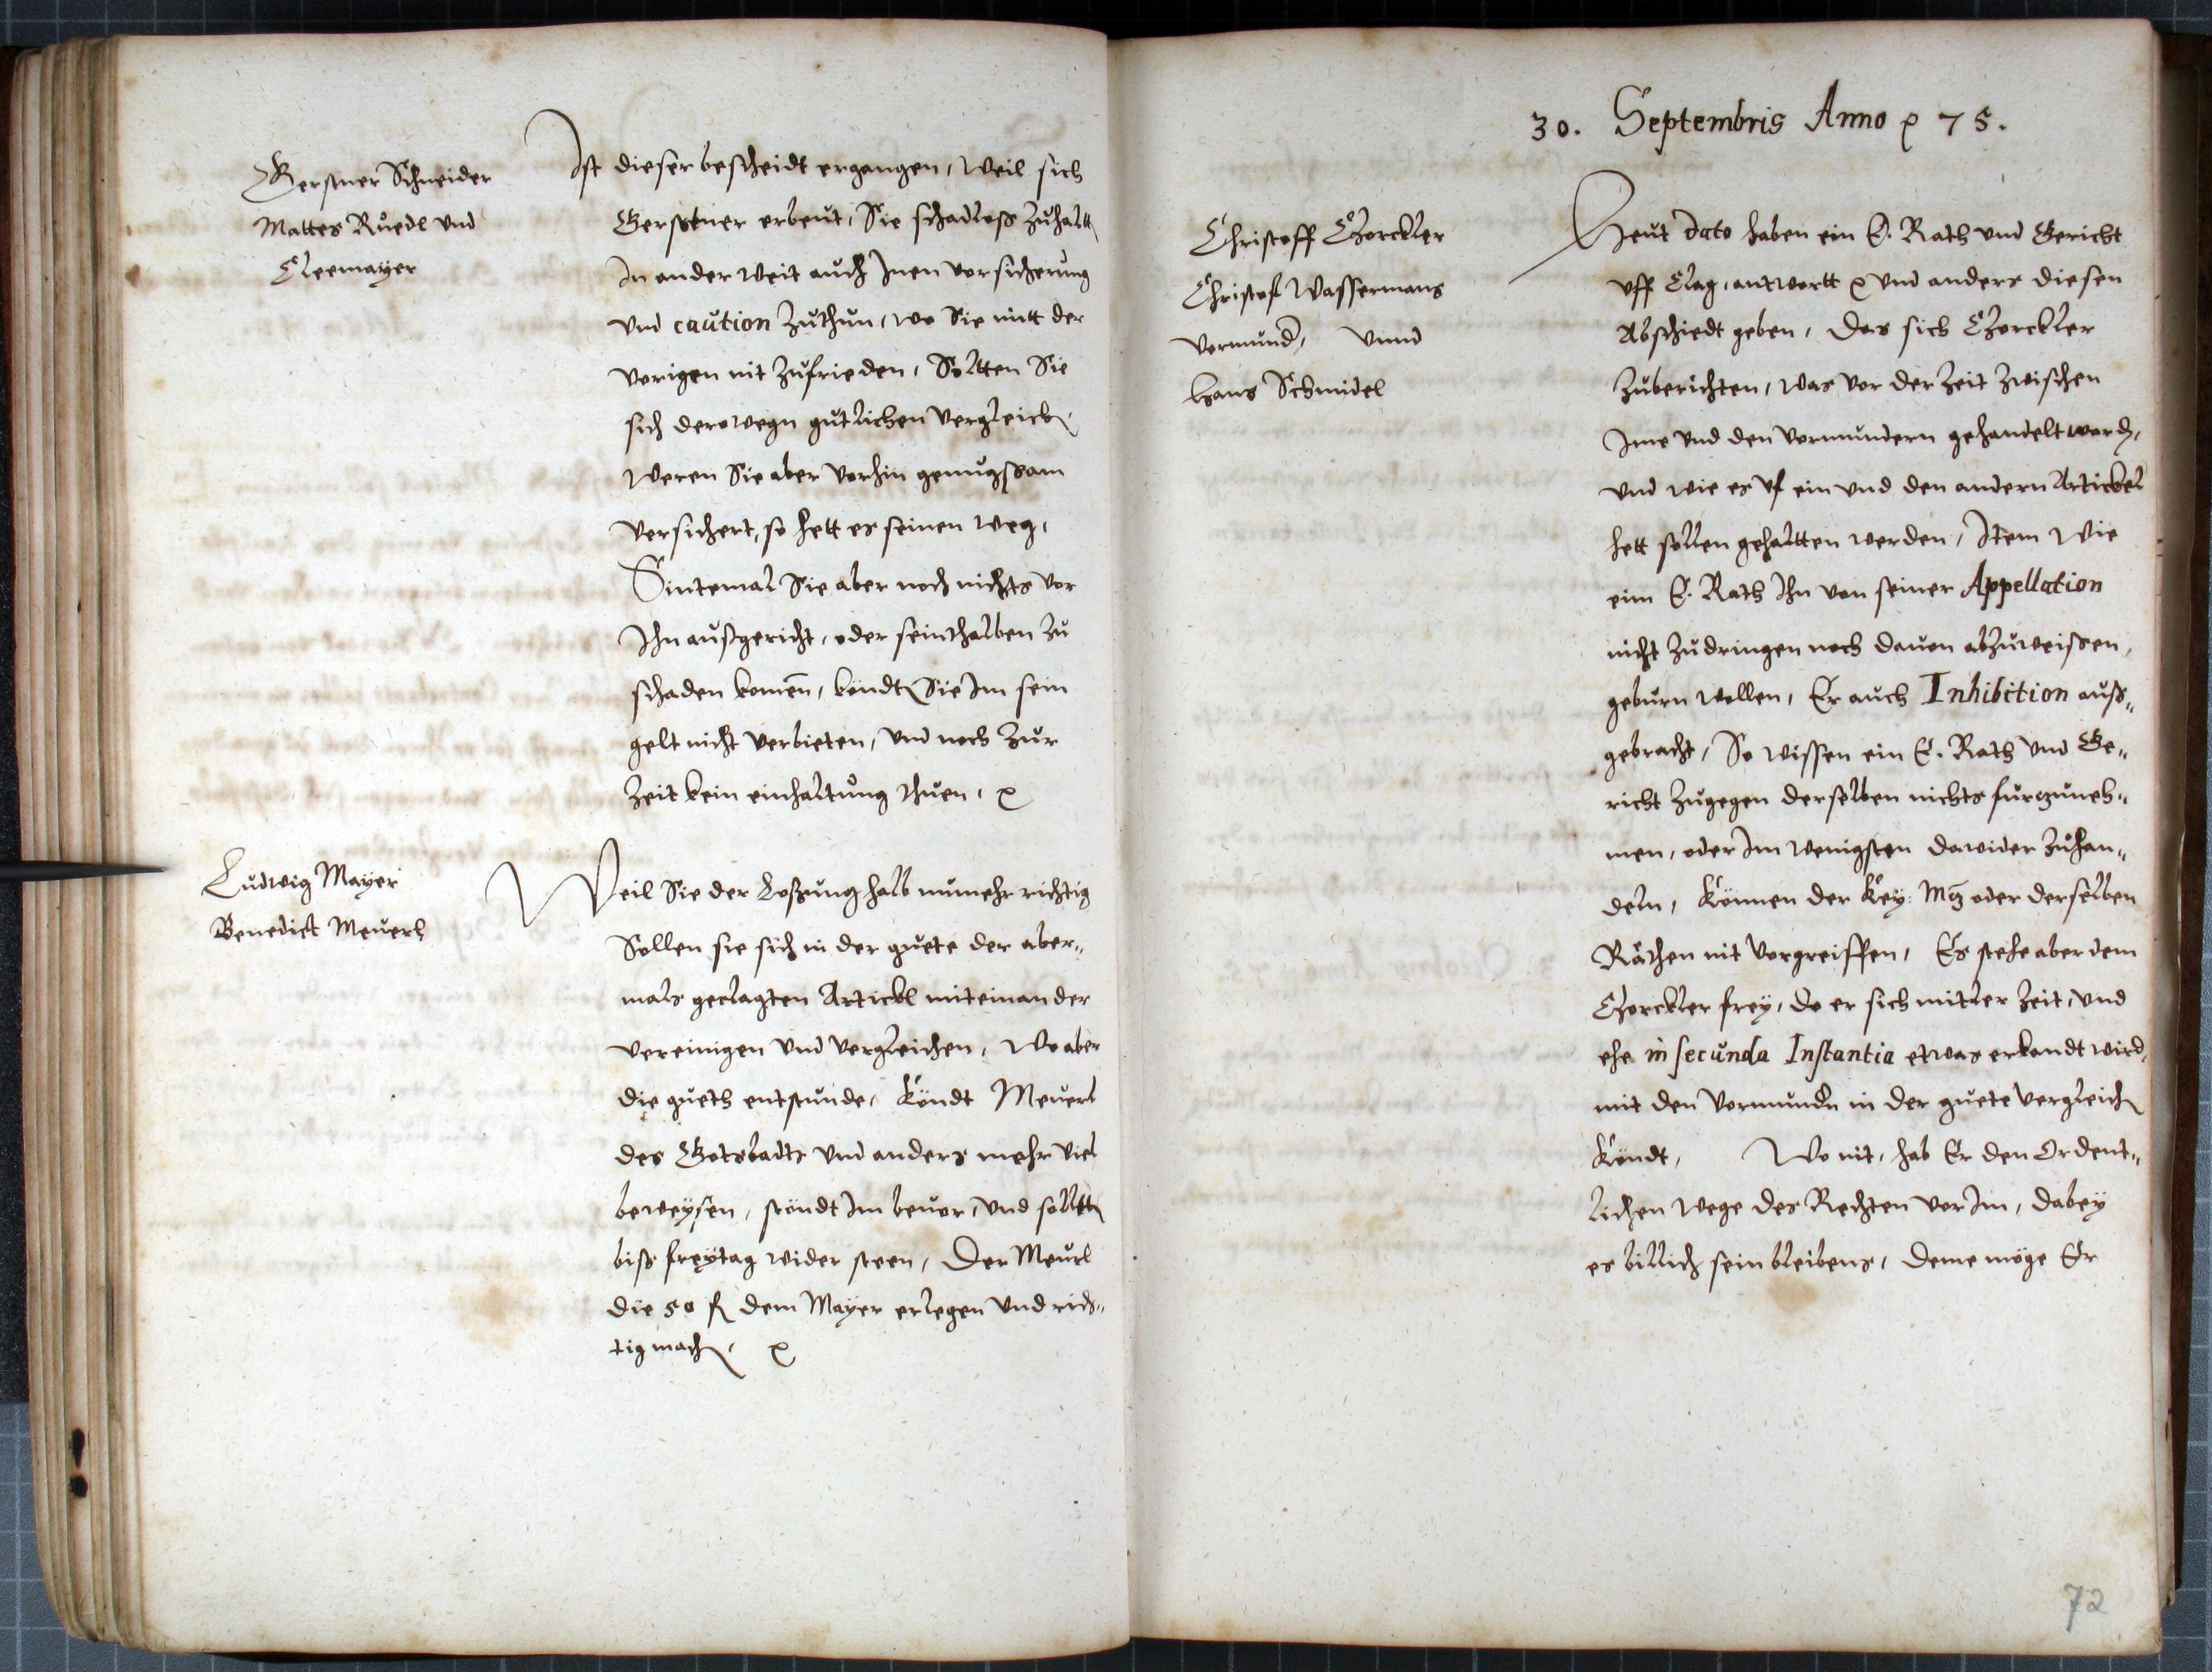 Gerstner Schneider
Mattes Ruedl vnd
Cleemayer
Ist dieser bescheidt ergangen, weil sich
Gerstner erbeut, Sie schadloss zuhaltn
In ander weit auch Inen vorsicherung
vnd caution zuthun, wo Sie mitt der
vorigen nit zufrieden, Soltten Sie
sich derowegn gutlichen vergleichn
Weren Sie aber vorhin genugsam
versichert, so hett es seinen weg,
Sintemal Sie aber noch nichts vor
Ihn aussgericht, oder seinthalben zu
schaden komen, köndtn Sie Im sein
gelt nicht verbieten, vnd noch zur
zeit kein einhaltung thuen,
Ludwig Mayer
Benedict Meuerl
Weil Sie der Losung halb numehr richtig
Sollen sie sich in der guete der aber„
mals geclagten Artickl miteinander
vereinigen vnd vergleichen, Wo aber
die gueth entstunde, Köndt Meuerl
des Gotsbadts vnd anders mehr viel
beweysen, stöndt Im beuor, vnd solttn
biss freytag wider steen, Der Meurl
die 50 fl dem Mayer erlegen vnd rich„
tig machn,
30. Septembris Anno 75.
Christoff Chorckler
Christof Wassermans
Vormund, vnnd
Hans Schmidel
Heut dato haben ein E. Rath vnd Gericht
vff Clag, antwortt vnd anders diesen
Abschiedt geben, Das sich Chorckler
zuberichten, was vor der zeit zwischen
Ime vnd den Vormundern gehandelt wordn,
vnd wie es vf ein vnd den andern Artickel
hett sollen gehaltten werden, Item wie
eim E. Rath Ihn von seiner Appellation
nicht zudringen noch dauon abzuweissen,
geburn wollen, Er auch Inhibition auss„
gebracht, So wissen ein E. Rath vnd Ge„
richt zugegen derselben nichts furzuneh„
men, oder Im wenigsten dawider zuhan„
deln, Können der Key: Mt oder derselben
Räthen nit vorgreiffen, Es stehe aber dem
Chorckler frey, do er sich mitler zeit, vnd
ehe in secunda Instantia etwas erkandt wird,
mit den Vormundn in der guete vergleichn
Köndt, Wo nit, hab Er den Ordent„
lichen wege des Rechten vor Im, dabey
es billich sein bleibens, deme möge Er
72